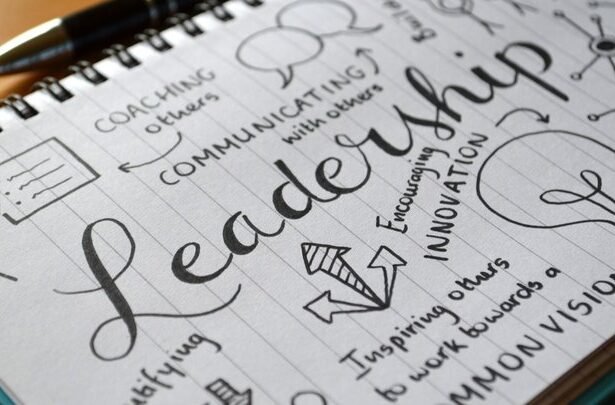 COACHING
others
COMMUNICATING
with others
Leadership
Encouraging
INNOVATION
Inspiring others
to work towards a